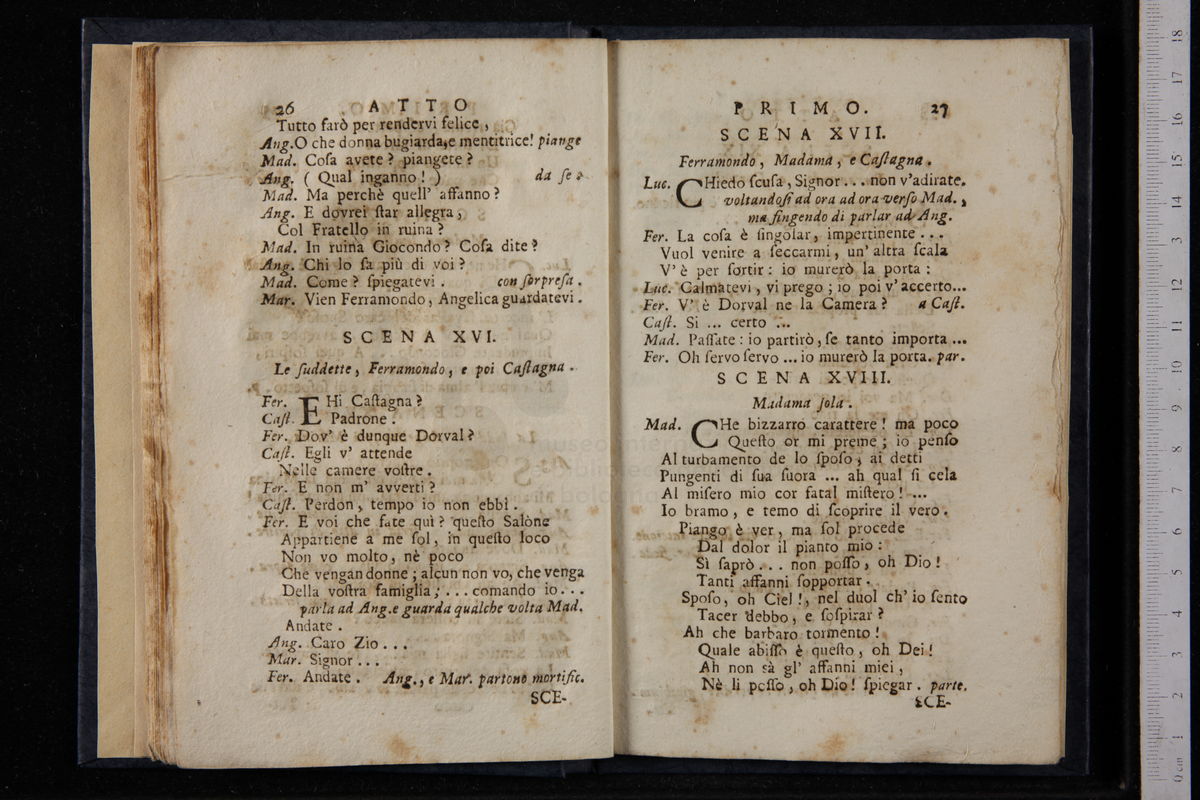 26 ATTO
Tutto farò per rendervi felice,
Ang. O che donna bugiarda, e mentitrice! piange
Mad. Coſa avete? piangete?
Ang. ( Qual inganno! ) da ſe
Mad. Ma perchè quell' affanno?
Ang. E dovrei ſtar allegra,
Col Fratello in ruina?
Mad. In ruina Giocondo? Coſa dite?
Ang. Chi lo ſa più di voi?
Mad. Come? ſpiegatevi. con ſorpreſa.
Mar. Vien Ferramondo, Angelica guardatevi.
SCENA XVI.
Le ſuddette, Ferramondo, e poi Caſtagna.
Fer. EHi Caſtagna?
Caſt. Padrone.
Fer. Dov' è dunque Dorval?
Caſt. Egli v' attende
Nelle camere voſtre.
Fer. E non m' avverti?
Caſt. Perdon, tempo io non ebbi.
Fer. E voi che fate quì? queſto Salone
Appartiene a me ſol, in queſto loco
Non vo molto, nè poco
Che vengan donne; alcun non vo, che venga
Della voſtra famiglia; ... comando io...
parla ad Ang. e guarda qualche volta Mad.
Andate.
Ang. Caro Zio...
Mar. Signor...
Fer. Andate. Ang., e Mar. partono mortific.
SCE-
PRIMO. 27
SCENA XVII.
Ferramondo, Madama, e Caſtagna.
Luc. CHiedo ſcuſa, Signor... non v'adirate.
voltandoſi ad ora ad ora verſo Mad.,
ma fingendo di parlar ad Ang.
Fer. La coſa è ſingolar, impertinente...
Vuol venire a ſeccarmi, un' altra ſcala
V' è per ſortir: io murerò la porta:
Luc. Calmatevi, vi prego; io poi v' accerto...
Fer. V' è Dorval ne la Camera? a Caſt.
Caſt. Si ... certo ...
Mad. Paſſate: io partirò, ſe tanto importa...
Fer. Oh ſervo ſervo... io murerò la porta. par.
SCENA XVIII.
Madama ſola.
Mad. CHe bizzarro carattere! ma poco
Queſto or mi preme; io penſo
Al turbamento de lo ſpoſo, ai detti
Pungenti di ſua ſuora ... ah qual ſi cela
Al miſero mio cor fatal miſtero! ...
Io bramo, e temo di ſcoprire il vero.
Piango è ver, ma ſol procede
Dal dolor il pianto mio:
Sì ſaprò... non poſſo, oh Dio!
Tanti affanni ſopportar.
Spoſo, oh Ciel!, nel duol ch' io ſento
Tacer debbo, e ſoſpirar?
Ah che barbaro tormento!
Quale abiſſo è queſto, oh Dei!
Ah non sà gl' affanni miei,
Nè li poſſo, oh Dio! ſpiegar. parte.
SCE-